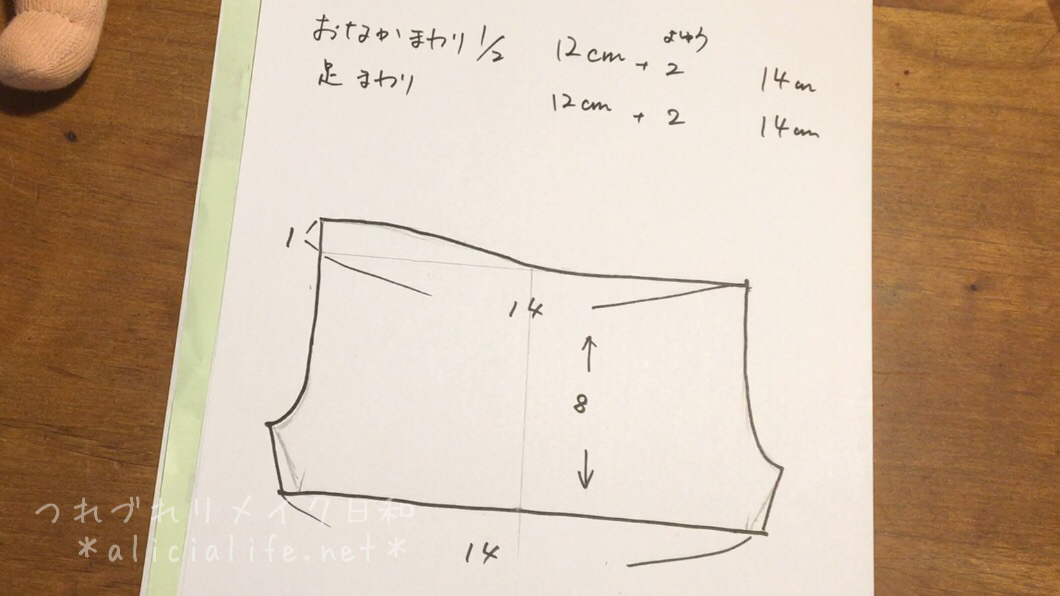 おなかまわり 1/2 12cm + 2 よゆう 14cm
足まわり 12cm + 2 14cm
1
14
8
14
つれづれリメイク日和
*alicialife.net*